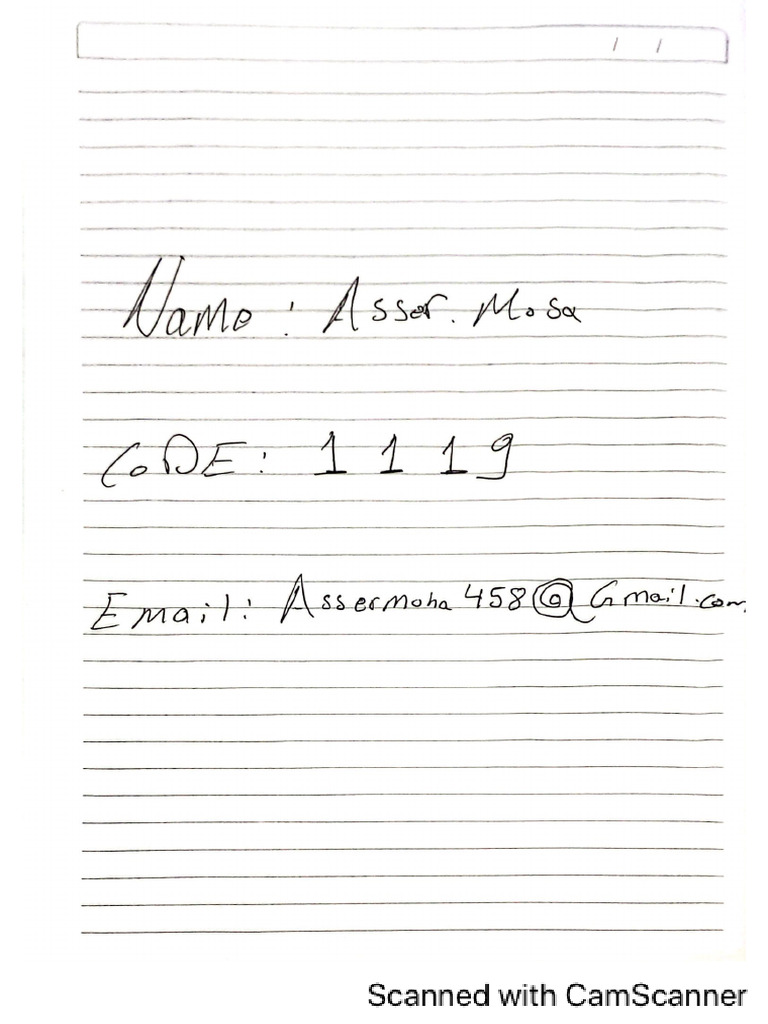 / /
Name: Asser. Mosa
CODE: 1 1 1 9
Email: Assermoha458@Gmail.com
Scanned with CamScanner